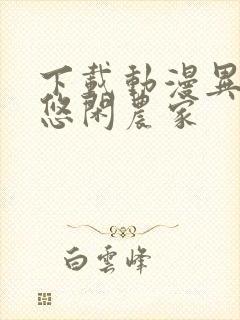 下載動漫異
悠閑農家
白雲峰